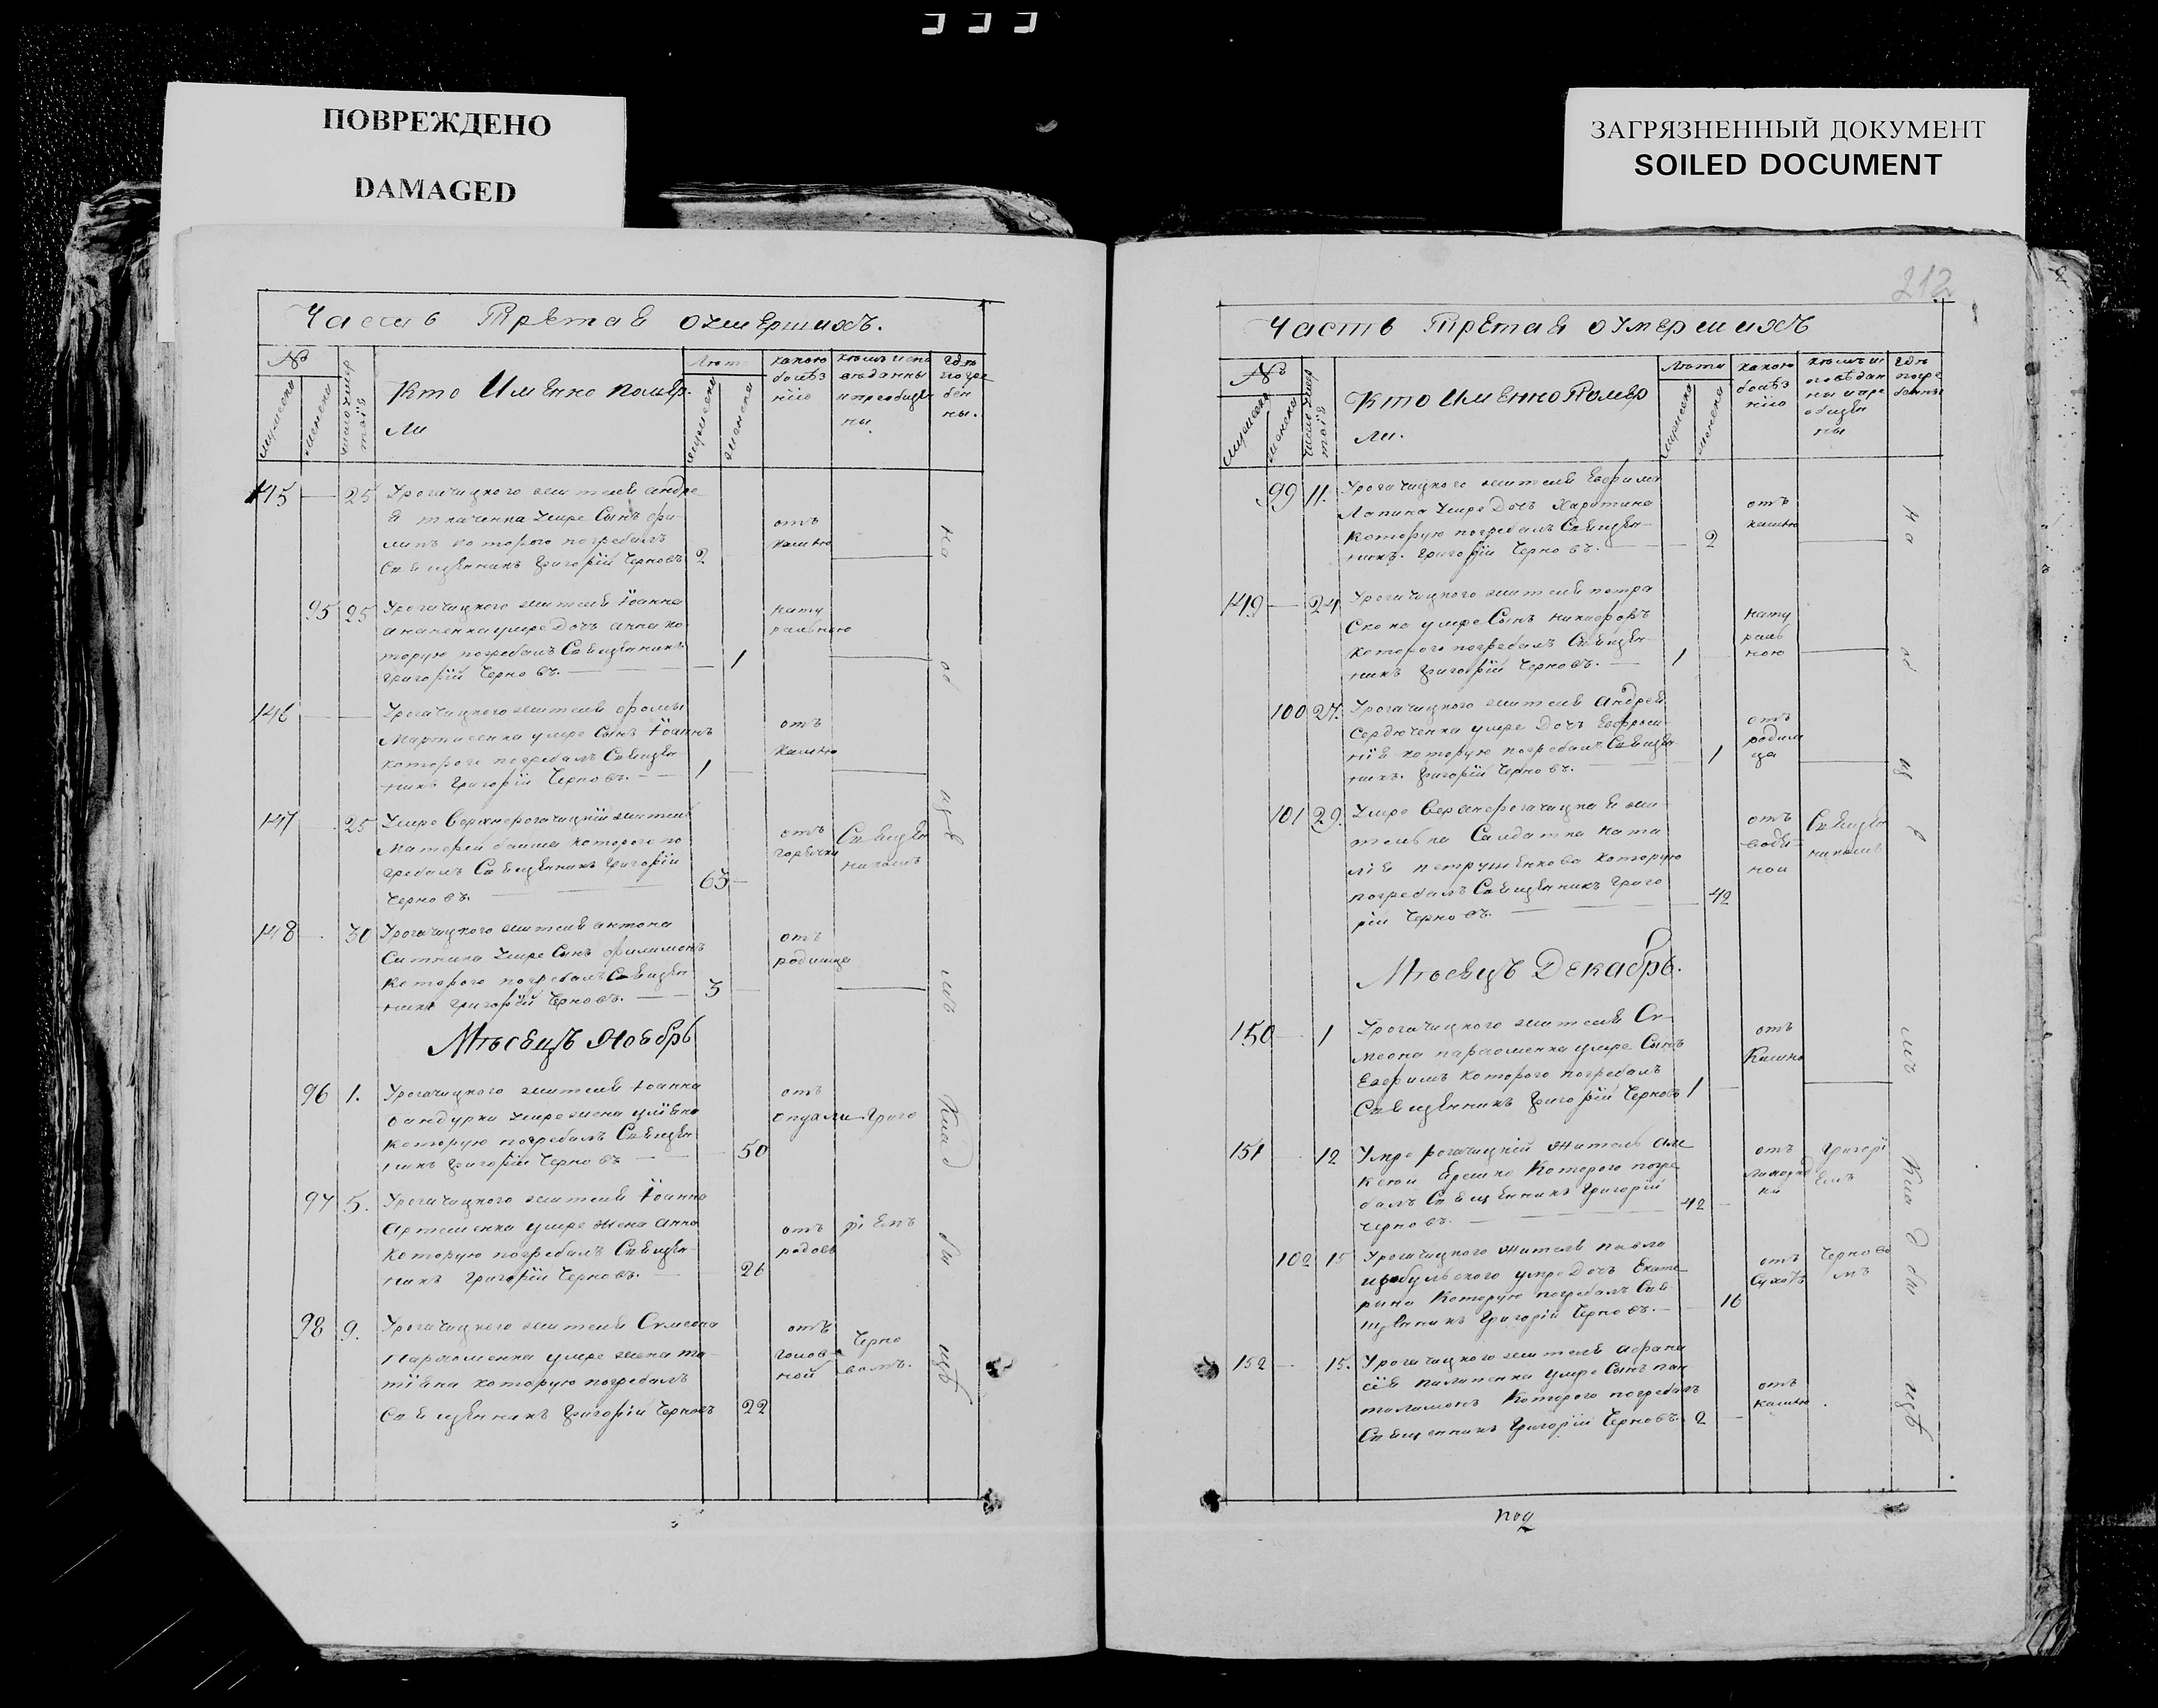 ПОВРЕЖДЕНО
DAMAGED
ЗАГРЯЗНЕННЫЙ ДОКУМЕНТ
SOILED DOCUMENT
212
Часть Третая оумершихъ.
№
Лѣт
какою болѣзнію
кѣмъ исповѣданны и преобщены.
Гдѣ погребенны.
мужеска
женска
Кто Именно Померли
мужеска
женска
145 — 25 У рогачицкого жителя андре
я ткаченка умре Сынъ фи
липъ которого погребалъ
Священникъ Григорїй Черновъ 2
отъ кашлю
95 25 У рогачицкого жителя Іоанна
ананенка умре Дочь анна ко
торую погребалъ Священникъ
Григорїй Черновъ. — 1
натуральною
146 У рогачицкого жителя фомы
Мартиненка умре Сынъ Іоаннъ
которого погребалъ Священ
никъ Григорїй Черновъ. — 1
отъ кашлю
147 25 Умре верхнерогачицкїй житель
Матфей которого по
гребалъ Священникъ Григорїй
Черновъ. 65
отъ горячки
Священникомъ
148 30 У рогачицкого жителя антона
Ситника умре Сынъ филимонъ
которого погребалъ Священ
никъ Григорїй Черновъ. — 3
отъ родимца
Мѣсяцъ Ноябрь
96 1. У рогачицкого жителя Іоанна
бандурка умре жена улїяна
которую погребалъ Священ
никъ Григорїй Черновъ — 50
отъ опухли
Григо
97 5. У рогачицкого жителя Іоанна
Артеменка умре жена анна
которую погребалъ Священ
никъ Григорїй Черновъ. — 26
отъ родовъ
рїемъ
98 9. У рогачицкого жителя Симеона
Пархоменка умре жена та
тїяна которую погребалъ
Священникъ Григорїй Черновъ 22
отъ головной
Черновомъ.
на общемъ кладбищѣ
Часть Третая оумершихъ
№
Лѣта
какою болѣзнію
кѣмъ исповѣданны и преобщены
Гдѣ погребенны
мужеска
женска
Кто Именно Померли.
мужеска
женска
99 11. У рогачицкого жителя Евфима
Лапина умре Дочь Харитина
которую погребалъ Священ
никъ. Григорїй Черновъ. — 2
отъ кашлю
149 — 24 У рогачицкого жителя петра
умре Сынъ никифоръ
которого погребалъ Священ
никъ Григорїй Черновъ. — 1
натуральною
100 27. У рогачицкого жителя Андрея
Сердюченка умре Дочь Евфроси
нїя которую погребалъ Священ
никъ. Григорїй Черновъ. 1
отъ родимца
101 29. Умре верхнерогачицкая жи
телька Салдатка ната
лїя петрушенкова которую
погребалъ Священникъ Григо
рїй Черновъ. — 42
отъ водяной
Священникомъ
Мѣсяцъ Декабрь.
150 1 У рогачицкого жителя Си
меона пархоменка умре Сынъ
Евфимъ которого погребалъ
Священникъ Григорїй Черновъ 1
отъ Кашлю
151 12 Умре рогачицкїй житель але
ксей Ярешко которого погре
балъ Священникъ Григорїй
черновъ. — 42
отъ лихорадки
Григорїемъ
102 15 У рогачицкого жителя павла
цыбульского умре Дочь Екате
рина Которую погребалъ Свя
щенникъ Григорїй Черновъ. — 16
отъ Сухотъ
Черновомъ
152 — 15. У рогачицкого жителя афана
сїя палапенка умре Сынъ пан
талимонъ Которого погребалъ
Священникъ Григорїй Черновъ. 2
отъ кашлю
на общемъ кладбищѣ